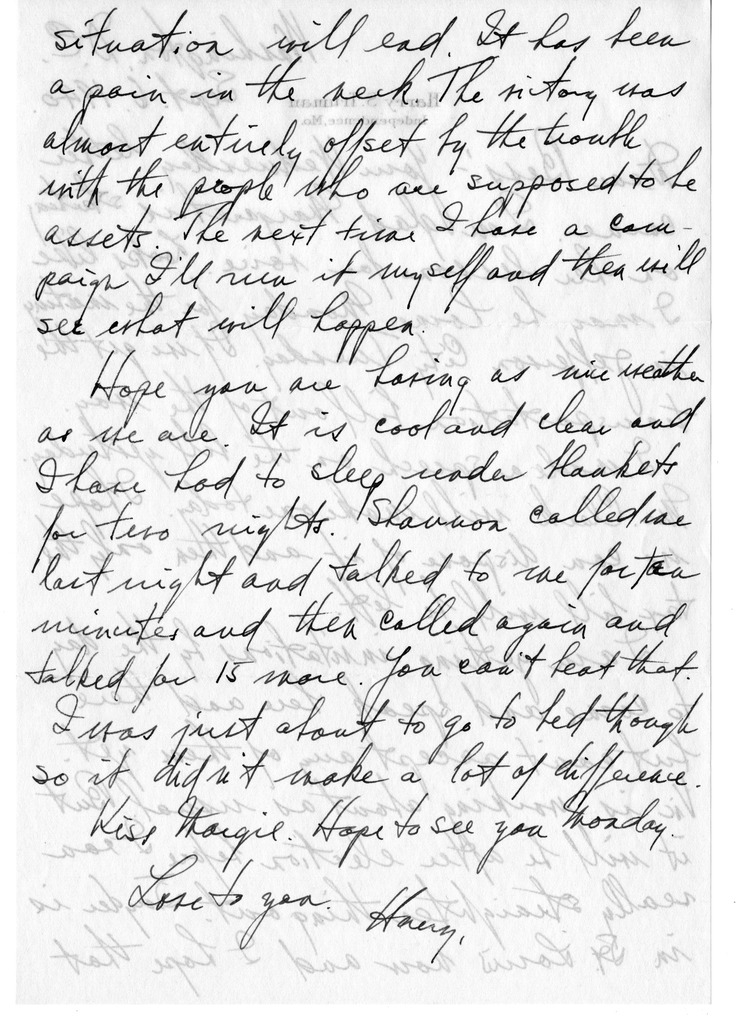 situation will end. It has been
a pain in the neck. The victory was
almost entirely offset by the trouble
with the people who are supposed to be
assets. The next time I have a cam-
paign I'll run it myself and then will
see what will happen.
Hope you are having as nice weather
as we are. It is cool and clear and
I have had to sleep under blankets
for two nights. Shannon called me
last night and talked to me for ten
minutes and then called again and
talked for 15 more. You can't beat that.
I was just about to go to bed though
so it didn't make a lot of difference.
Kiss Margie. Hope to see you Monday.
Love to you.
Harry.